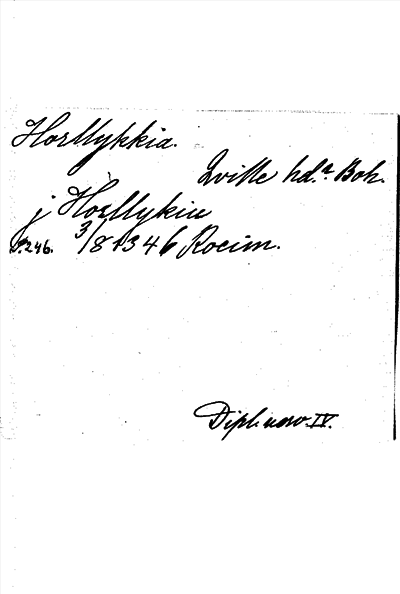 Horllykkia.
Qville hd.r Boh.
j Horllykiu
S. 246. 3/8 1346 Roeim.
Dipl. norv. IV.